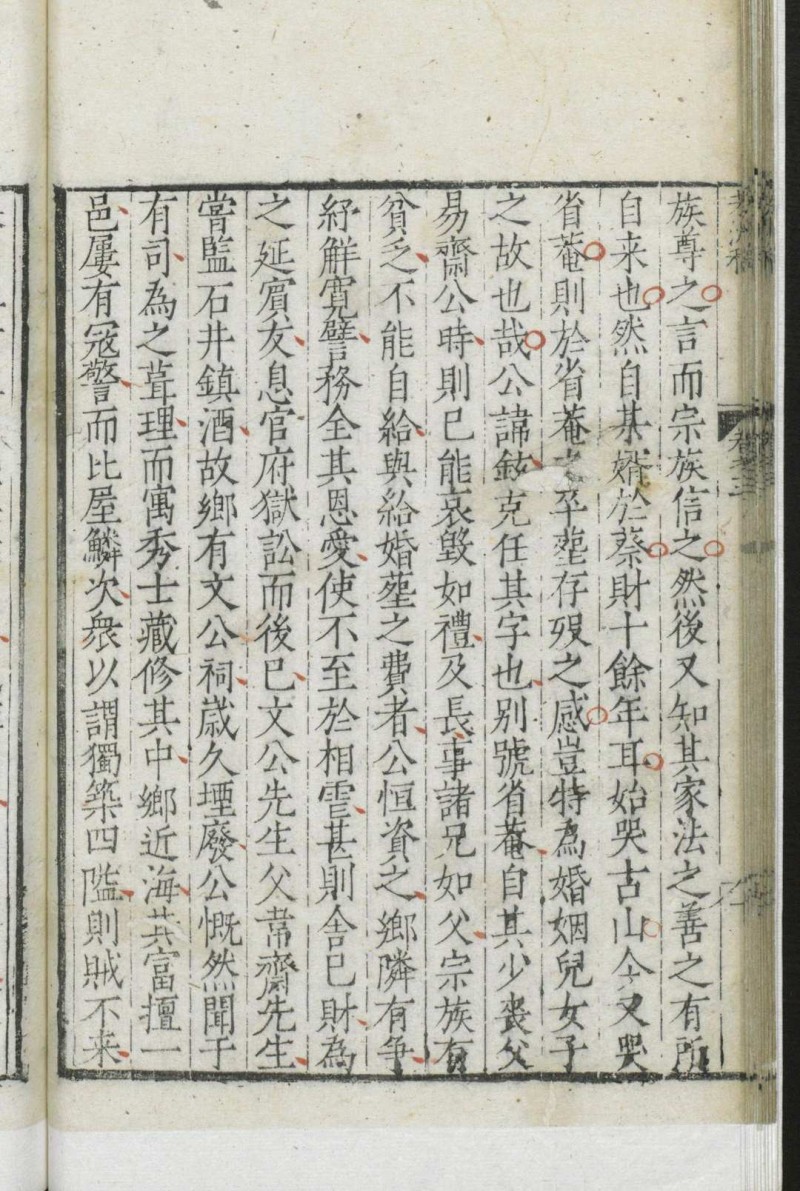 族尊之言而宗族信之然後又知其家法之善之有所
自来也然自某婿於蔡財十餘年耳始哭古山今又哭
省菴則於省菴之卒塟存殁之感豈特為婚姻兒女子
之故也哉公諱鉉克任其字也别號省菴自其少喪父
易齋公時則已能哀毀如禮及長事諸兄如父宗族有
貧乏不能自給與給婚塟之費者公恒資之鄉隣有争
紓觧寛譬務全其恩愛使不至於相讐甚則舎已財為
之延賓友息官府獄訟而後已文公先生父韋齋先生
嘗監石井鎮酒故鄉有文公祠歳久堙廢公慨然聞于
有司為之葺理而寓秀士藏修其中鄉近海其富擅一
邑屢有冦警而比屋鱗次衆以謂獨築四隘則賊不来
卷之三